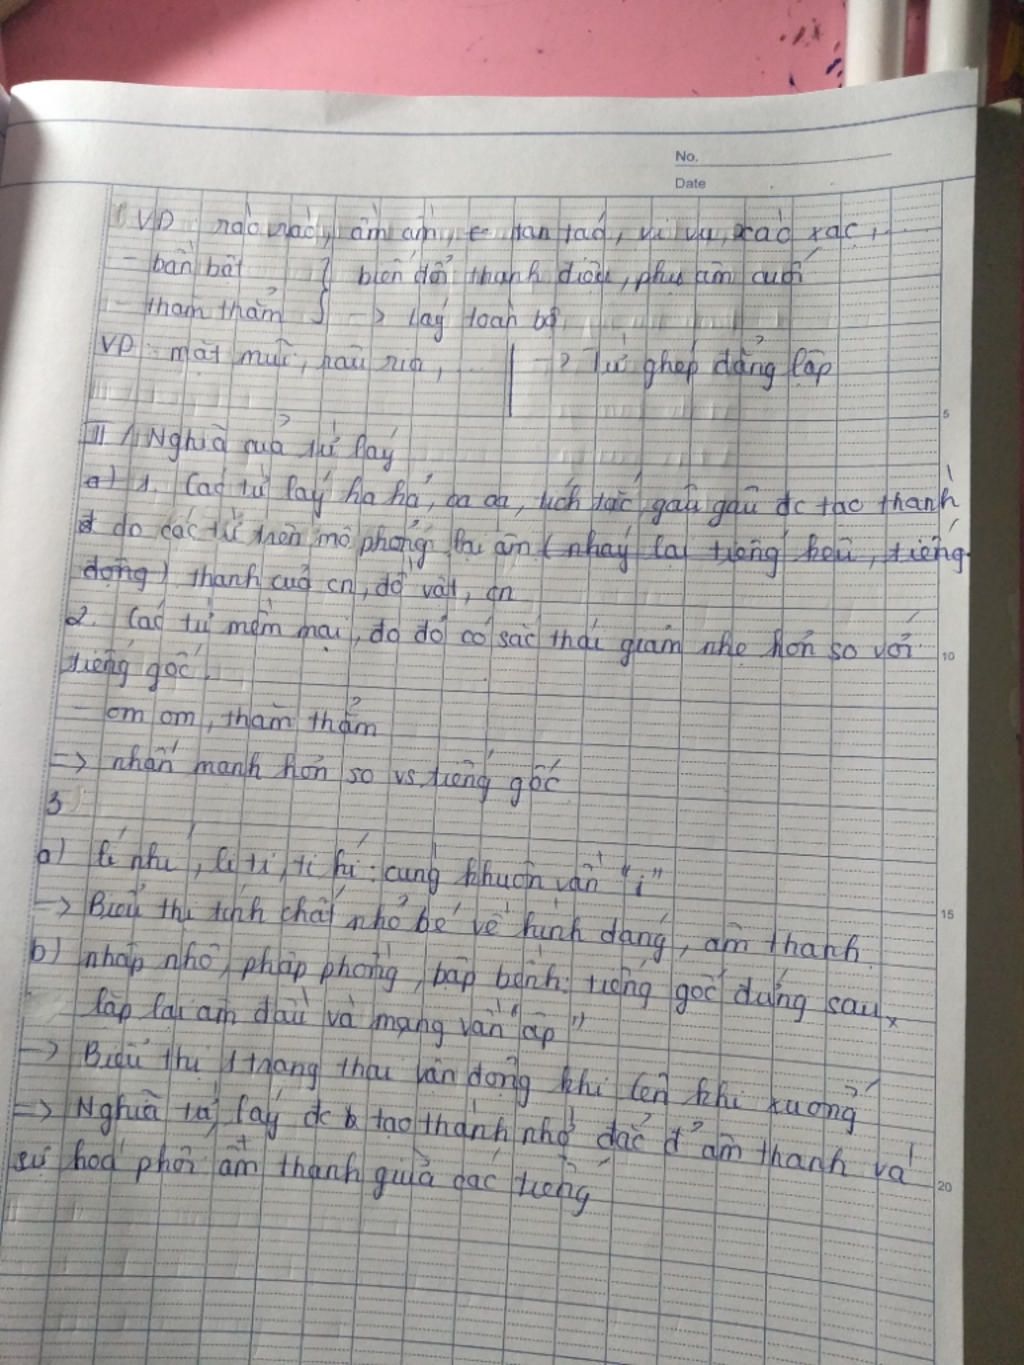 No.
Date
VD: rào rào, ầm ầm, tan tác, vi vu, xào xạc,
- bần bật } biến đổi thanh điệu, phụ âm cuối
- thăm thẳm } -> láy toàn bộ
VD: mặt mũi, râu ria, | -> Từ ghép đẳng lập
5
II / Nghĩa của từ láy
a) 1. Các từ láy ha hả, oa oa, tích tắc, gâu gâu đc tạo thành
do các từ trên mô phỏng lại âm (nhạy lại tiếng kêu, tiếng
động) thanh của cn, đồ vật, cn
2. Các từ mềm mại, đo đỏ có sắc thái giảm nhẹ hơn so với
10
tiếng gốc.
- om om, thăm thẳm
=> nhấn mạnh hơn so vs tiếng gốc
3
a) lí nhí, li ti, ti hí: cùng khuôn vần "i"
-> Biểu thị tính chất nhỏ bé về hình dáng, âm thanh
15
b) nhấp nhô, phập phồng, bập bềnh: tiếng gốc đứng sau,
lặp lại âm đầu và mang vần "âp"
-> Biểu thị 1 trạng thái vận động khi lên khi xuống
=> Nghĩa từ láy đc tạo thành nhờ đặc đ² âm thanh và
sự hoà phối âm thanh giữa các tiếng
20